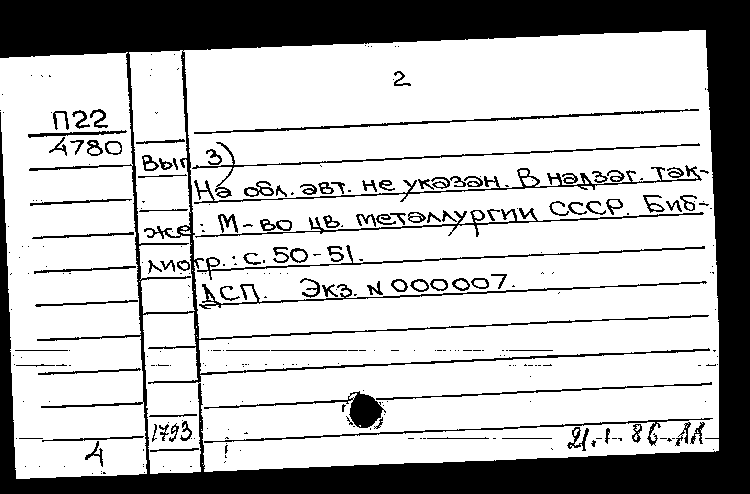 2
П22
4780
Вып. 3)
На обл. авт. не указан. В надзаг. так-
же: М-во цв. металлургии СССР. Биб-
лиогр.: с. 50-51.
ДСП. Экз. N 000007.
1793
4
21.1.86